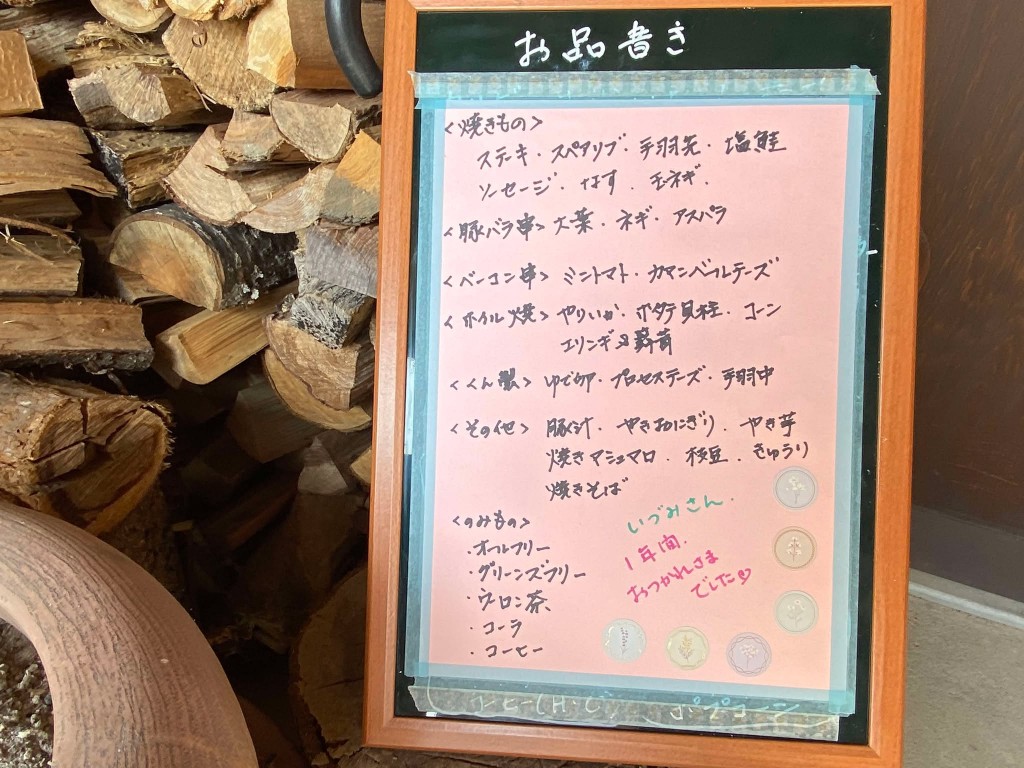 お品書き
<焼きもの>
ステーキ・スペアリブ・手羽先・塩鮭
ソーセージ・なす・玉ネギ・
<豚バラ串> 大葉・ネギ・アスパラ
<ベーコン串> ミニトマト・カマンベールチーズ
<ホイル焼> やりいか・ホタテ貝柱・コーン
エリンギ
<くん製> ゆで卵・プロセスチーズ・手羽中
<その他> 豚汁・やきおにぎり・やき芋
焼きマシュマロ・枝豆・きゅうり
焼きそば
<のみもの>
・オールフリー
・グリーンズフリー
・ウーロン茶
・コーラ
・コーヒー
いづみさん
1年間.
おつかれさま
でした
コーヒー(H・C) ポップコーン